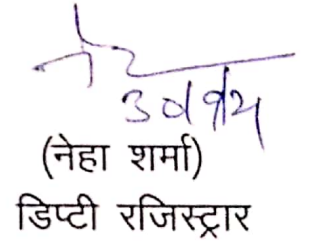 (नेहा शर्मा)
डिप्टी रजिस्ट्रार